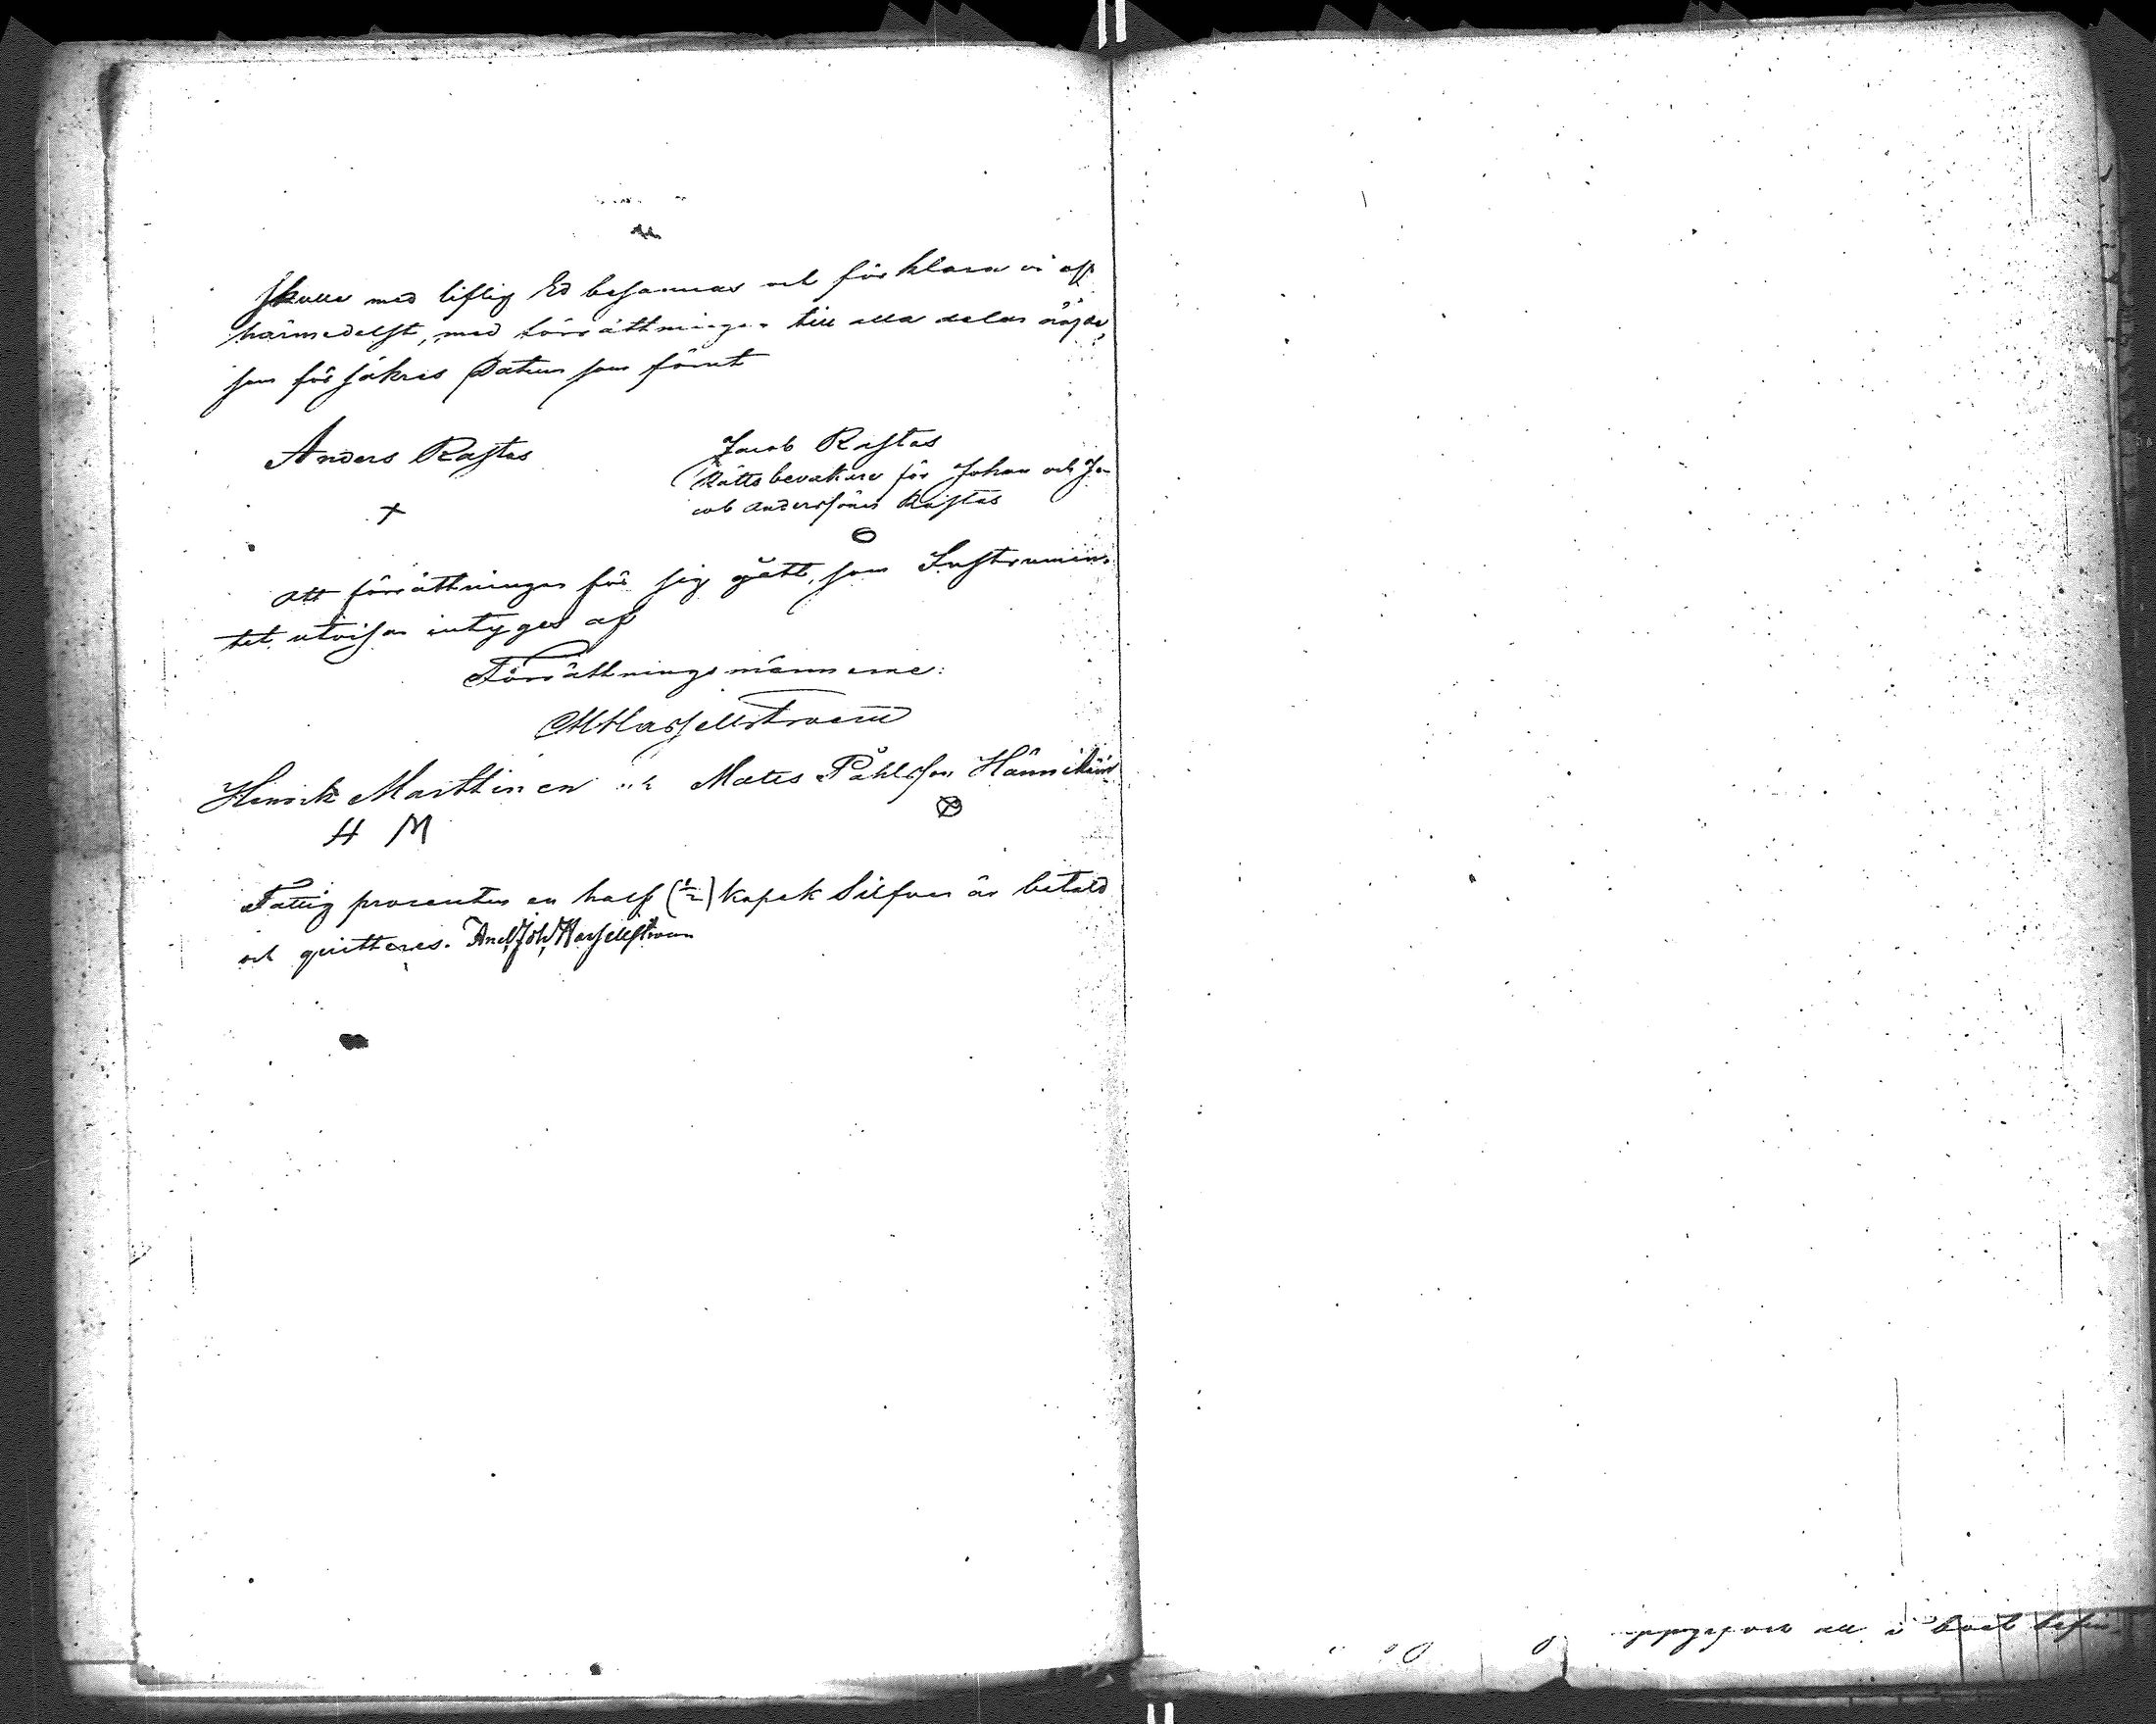 skulle med liflig Ed besannas och förklara vi oss
härmedelst, med förrättningen till alla delar nöjde,
som försäkras Datum som förut
Anders Rastas
Jacob Rastas
Rättsbevakare för Johan och Ja-
cob Anderssöner Rastas
Att förrättningen för sig gått, som Instrumen-
tet utvisar intygas af
Förrättningsmännerne:
Hasselstroem
Henrik Marttinen och Mats Påhlsson Hännikäin
H M
Fattig procenten en half (1/2) kopek Silfver är betald
och quitteras. And. Joh. Hasselstroem
uppgifvit all i boet befin-